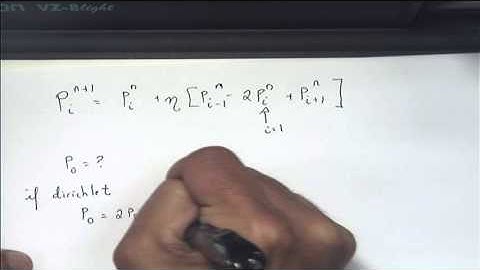 P_i^{n+1} = P_i^n + η [P_{i-1}^n - 2P_i^n + P_{i+1}^n]
↑
i=1
P_0 = ?
if dirichlet
P_0 = 2P